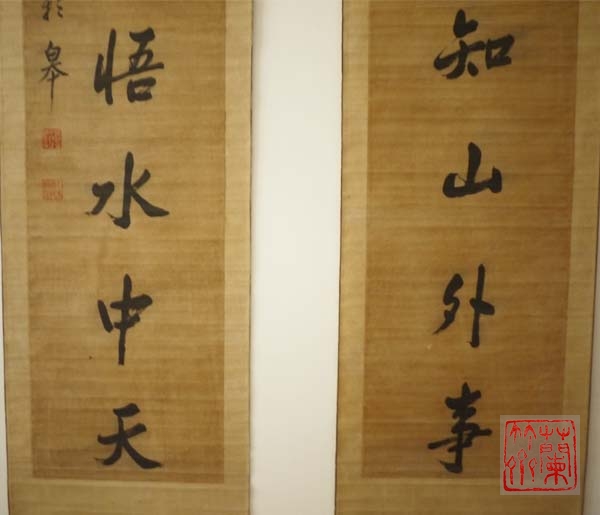 知山外事
悟水中天
皋
蘭